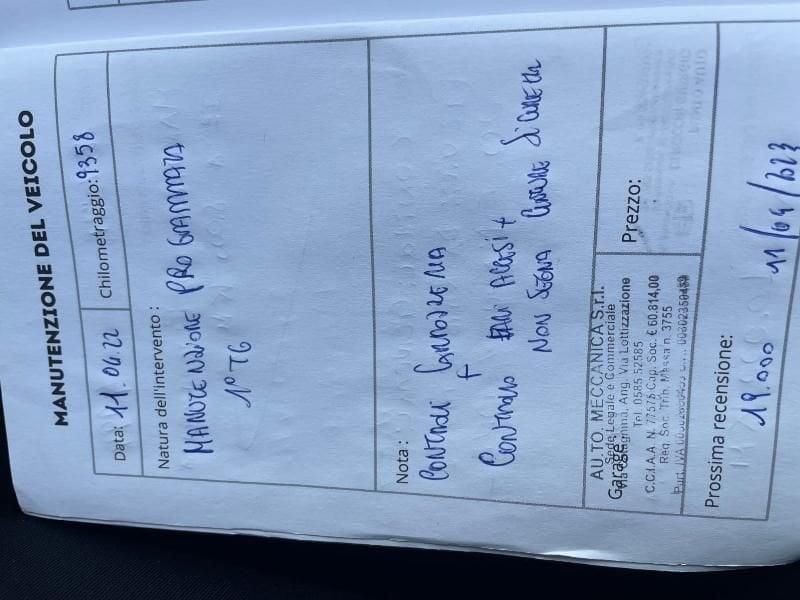 MANUTENZIONE DEL VEICOLO
Data: 11.04.22 Chilometraggio: 9358
Natura dell'intervento :
MANUTENZIONE PROGRAMMATA
1° TG
Nota :
CONTROLLI
+
CONTROLLO FARI ACCESI +
NON SEGNA CINTURE SICUREZZA
AU.TO. MECCANICA S.r.l.
Sede Legale e Commerciale
Garage
Ang. Via Lottizzazione
Tel. 0585 52585
C.C.I.A.A. N. 77576 Cap. Soc. € 60.814,00
Reg. Soc. Trib. Massa n. 3755
Part. IVA
Prezzo:
Prossima recensione:
19.000 11/04/2023